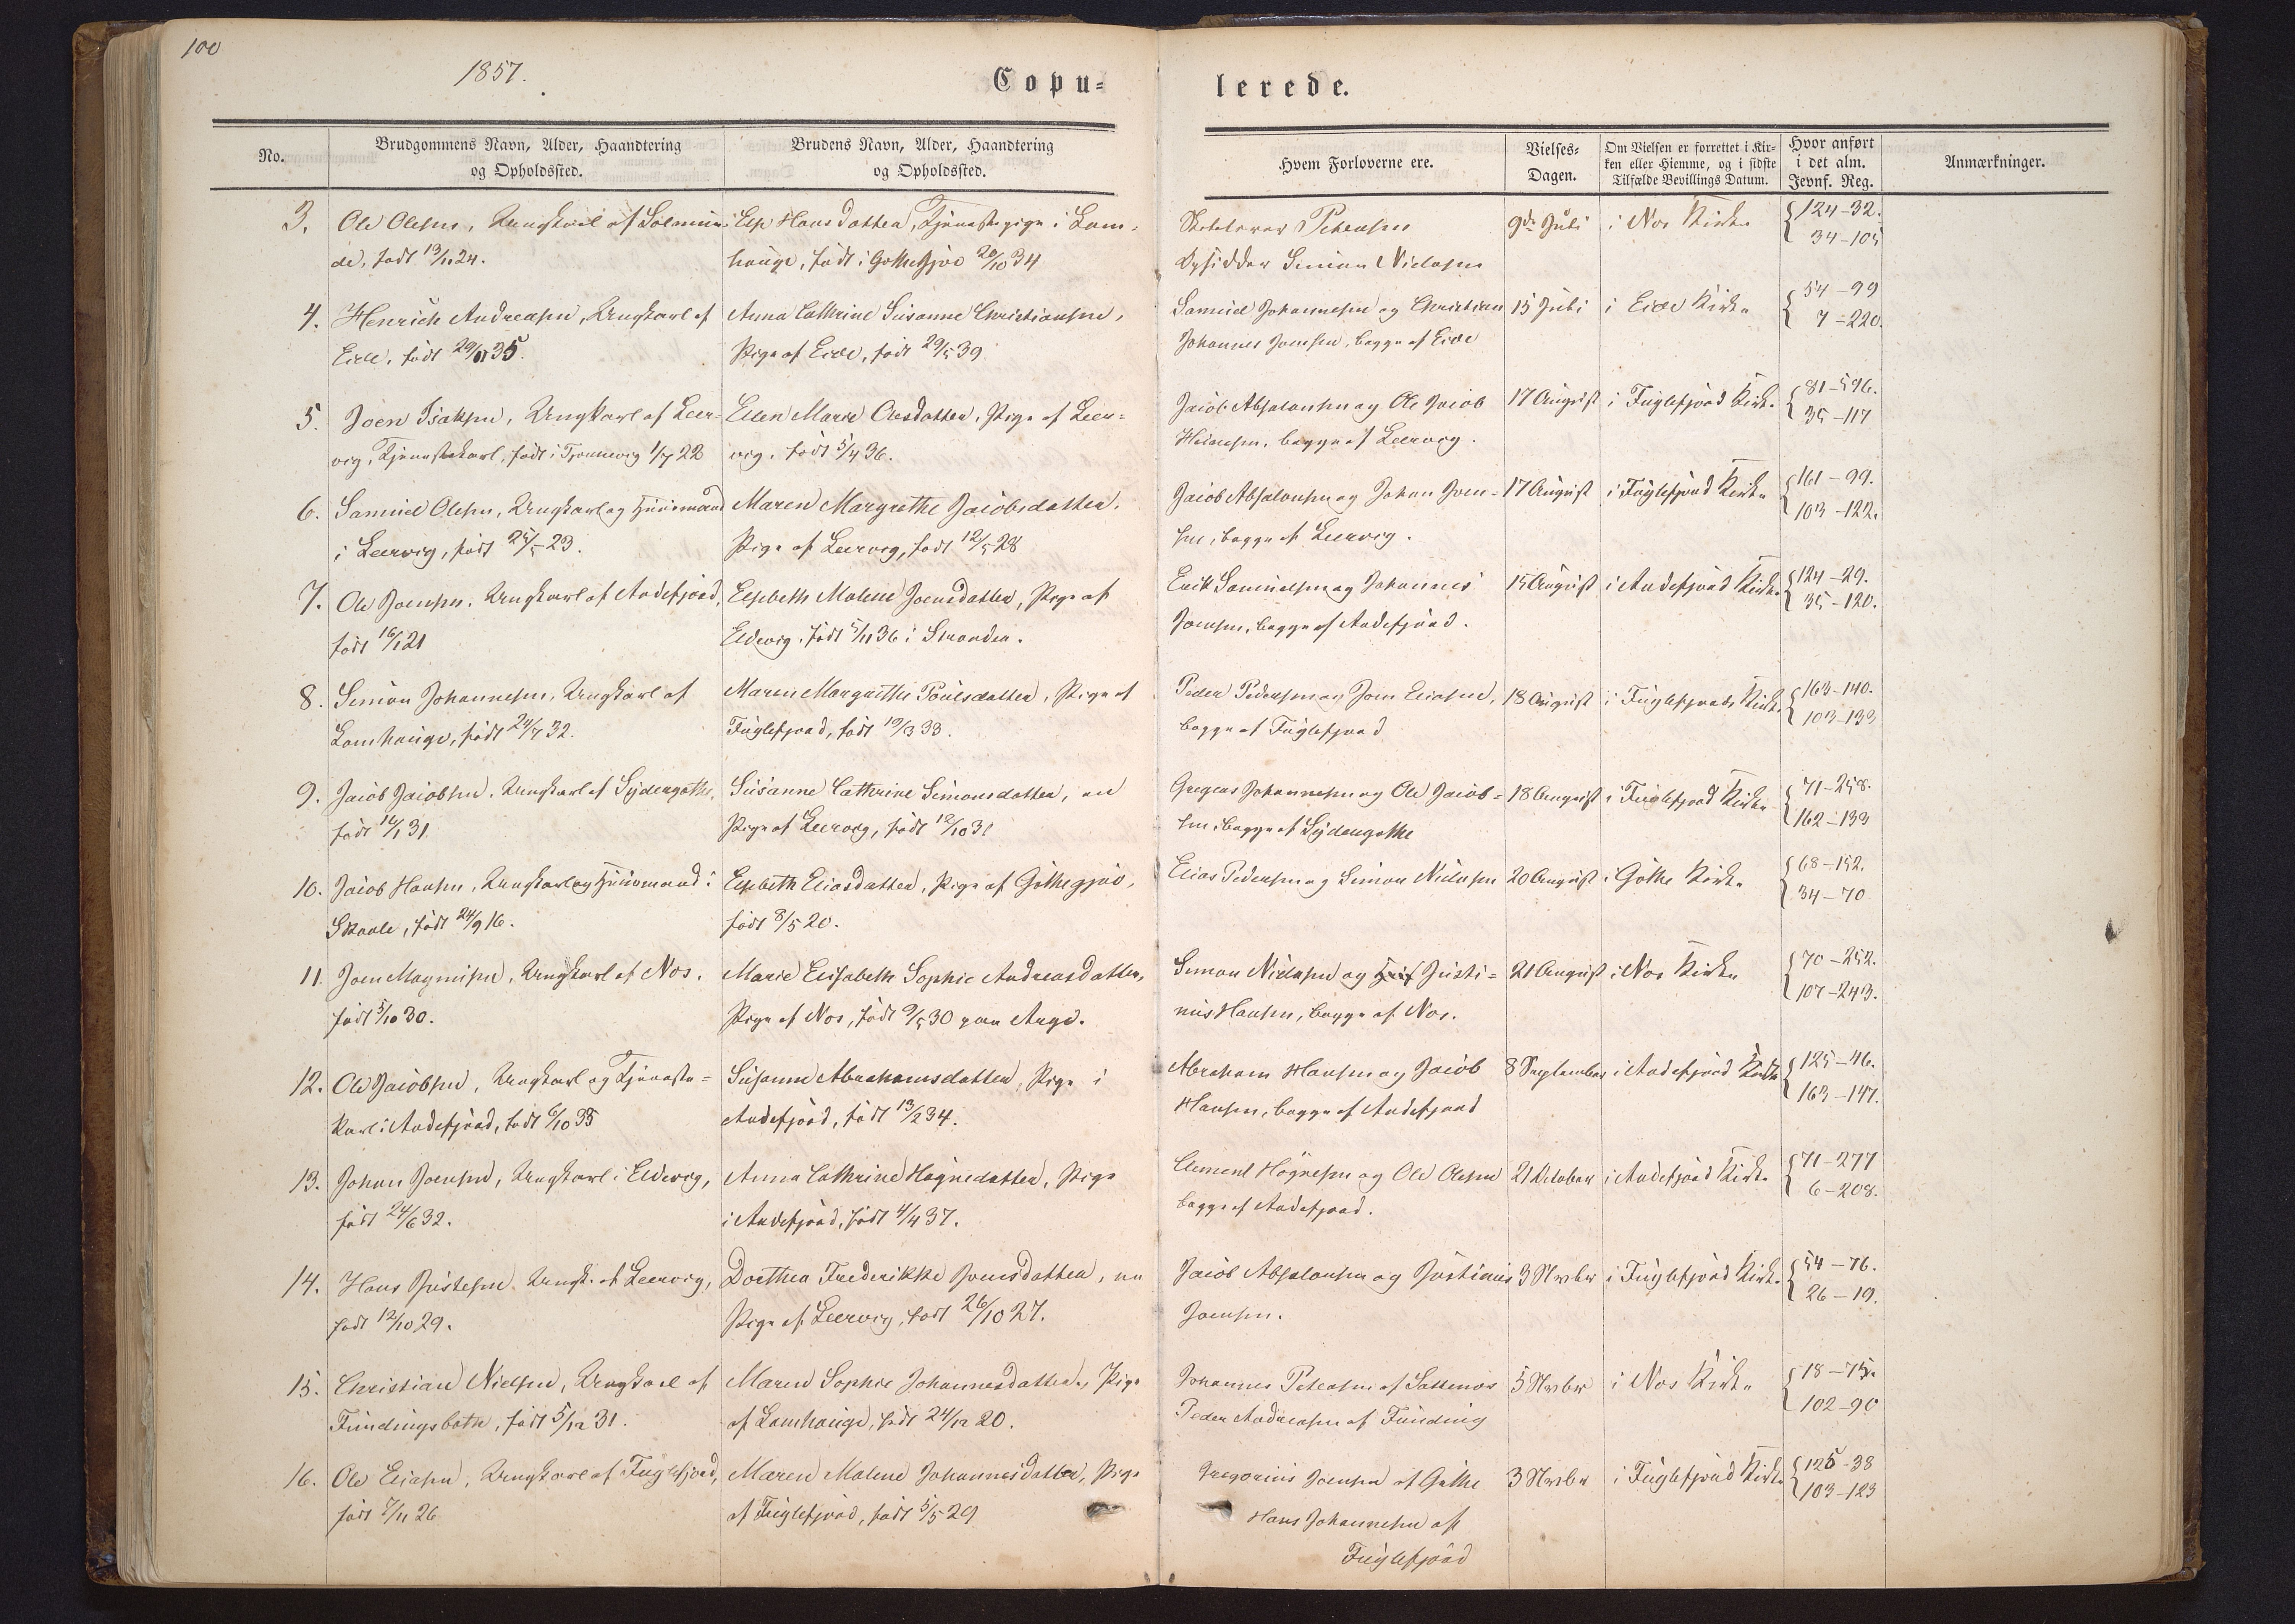 100
1857.
Copu=
lerede.
No.
Brudgommens Navn, Alder, Haandtering
og Opholdssted.
Brudens Navn, Alder, Haandtering
og Opholdssted.
Hvem Forloverne ere.
Vielses-
Dagen.
Om Vielsen er forrettet i Kir-
ken eller Hiemme, og i sidste
Tilfælde Bevillings Datum.
Hvor anført
i det alm.
Jevnf. Reg.
Anmærkninger.
3. Ole Olesen, Ungkarl af Solmun-
de, født 13/10 24.
Else Hansdatter, Tjenestepige i Lam-
hauge, født i Gothegjov 20/10 34
Petersen
Opsidder Simon Nielsen
9de Juli
i Nos Kirke
124-32.
34-105
4. Henrich Andreasen, Ungkarl af
Eide, født 29/11 35.
Anna Cathrine Susanne Christiansen,
Pige af Eide, født 29/5 39
Samuel Johannesen og Christian
Johannes Joensen, begge af Eide
15 Juli
i Eide Kirke
54-99
7-220.
5. Joen Isaksen, Ungkarl af Leer-
vig, Tjenestekarl, født i Tjørnevig 1/7 22
Ellen Marie Olesdatter, Pige af Leer-
vig, født 5/4 36.
Jacob Absalonsen og Ole Jacob
Heinesen, begge af Leervig.
17 August
i Fuglefjord Kirke
81-596.
35-117
6. Samuel Olesen, Ungkarl og Huusmand
i Leervig, født 25/5 23.
Maren Margrethe Jacobsdatter,
Pige af Leervig, født 12/5 28
Jacob Absalonsen og Johan Joen-
sen, begge af Leervig.
17 August
i Fuglefjord Kirke
161-99.
103-122.
7. Ole Joensen, Ungkarl af Andefjord,
født 16/1 21
Elsebeth Malene Joensdatter, Pige af
Eldevig, født 5/11 36 i Strander.
Erik Samuelsen og Johannes
Joensen, begge af Andefjord.
15 August
i Andefjord Kirke
124-29.
35-120.
8. Simon Johannesen, Ungkarl af
Lamhauge, født 24/7 32.
Maren Margrethe Poulsdatter, Pige af
Fuglefjord, født 19/3 33.
Peder Pedersen og Joen Eliasen,
begge af Fuglefjord
18 August
i Fuglefjords Kirke
163-140.
103-133
9. Jacob Jacobsen, Ungkarl af Sydergothe,
født 14/1 31
Susanne Cathrine Simonsdatter, en
Pige af Leervig, født 12/10 31
Gregers Johannesen og Ole Jacob-
sen, begge af Sydergothe
18 August
i Fuglefjord Kirke
71-258.
162-133
10. Jacob Hansen, Ungkarl og Huusmand i
Skaale, født 24/9 16.
Elsebeth Eliasdatter, Pige af Gothegjov,
født 8/5 20.
Elias Pedersen og Simon Nielsen
20 August
i Gothe Kirke
68-152.
34-70
11. Joen Magnusen, Ungkarl af Nos,
født 5/10 30.
Marie Elisabeth Sophie Andreasdatter,
Pige af Nos, født 9/5 30 paa Argd.
Simon Nielsen og Justi-
nus Hansen, begge af Nos.
21 August
i Nos Kirke
70-252.
107-243.
12. Ole Jacobsen, Ungkarl og Tjeneste-
karl i Andefjord, født 6/10 35
Susanne Abrahamsdatter, Pige i
Andefjord, født 13/2 34.
Abraham Hansen og Jacob
Hansen, begge af Andefjord
8 September
i Andefjord Kirke
125-46.
163-147.
13. Johan Joensen, Ungkarl i Eldevig,
født 24/6 32.
Anna Cathrine Høgnedatter, Pige
i Andefjord, født 4/4 37.
Clement Høgnesen og Ole Olesen
begge af Andefjord.
21 October
i Andefjord Kirke
71-277
6-208.
14. Hans Justesen, Ungk. af Leervig,
født 12/10 29.
Dorthea Frederikke Joensdatter, en
Pige af Leervig, født 26/10 27.
Jacob Absalonsen og Justinus
Joensen.
3 Nvbr
i Fuglefjord Kirke
54-76.
26-19.
15. Christian Nielsen, Ungkarl af
Fundingsbotn, født 5/12 31.
Maren Sophie Johannesdatter, Pige
af Lamhauge, født 24/12 20.
Johannes Petersen af Saltenæs
Peder Andreasen af Funding
5 Nvbr
i Nos Kirke
18-75.
102-90
16. Ole Eliasen, Ungkarl af Fuglefjord,
født 7/11 26
Maren Malene Johannesdatter, Pige
af Fuglefjord, født 5/5 29
Gregorius Joensen af Gothe
Hans Johannesen af
Fuglefjord
3 Nvbr
i Fuglefjord Kirke
125-38
103-123